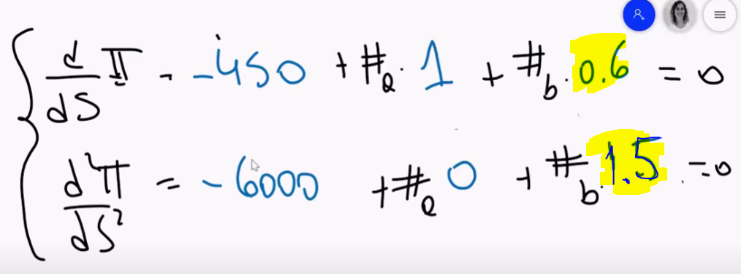 d/dS π = -450 + #Q · 1 + #b · 0.6 = 0
d²π/dS² = -6000 + #Q 0 + #b · 1.5 = 0